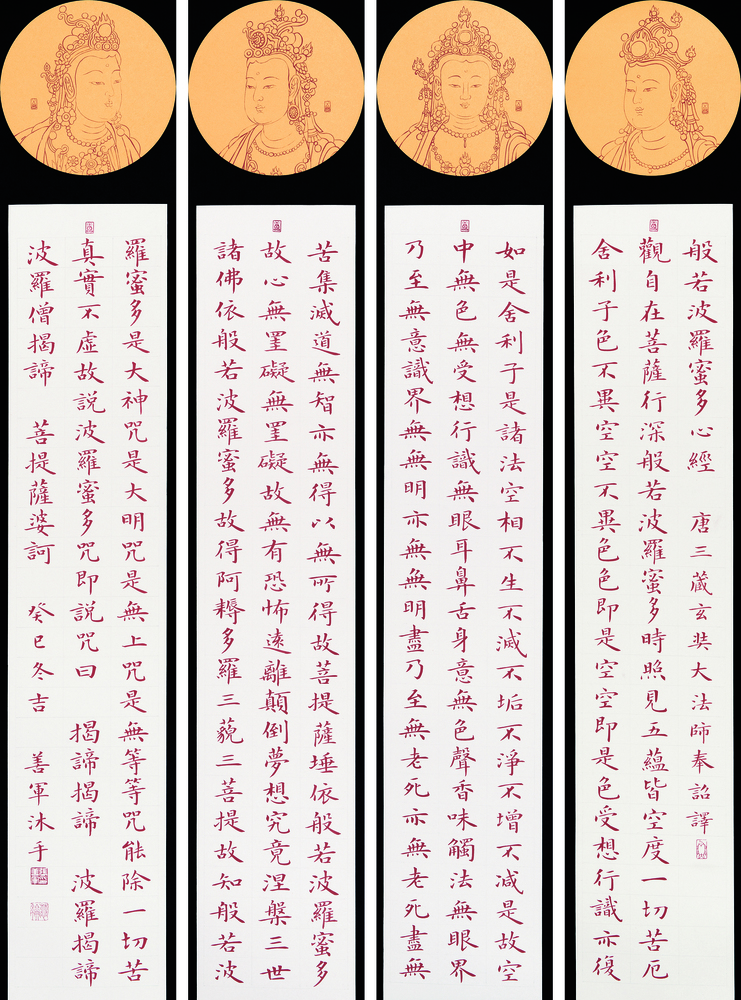 般若波羅蜜多心經 唐三藏玄奘大法師奉詔譯
觀自在菩薩行深般若波羅蜜多時照見五蘊皆空度一切苦厄
舍利子色不異空空不異色色即是空空即是色受想行識亦復
如是舍利子是諸法空相不生不滅不垢不淨不增不減是故空
中無色無受想行識無眼耳鼻舌身意無色聲香味觸法無眼界
乃至無意識界無無明亦無無明盡乃至無老死亦無老死盡無
苦集滅道無智亦無得以無所得故菩提薩埵依般若波羅蜜多
故心無罣礙無罣礙故無有恐怖遠離顛倒夢想究竟涅槃三世
諸佛依般若波羅蜜多故得阿耨多羅三藐三菩提故知般若波
羅蜜多是大神咒是大明咒是無上咒是無等等咒能除一切苦
真實不虛故説波羅蜜多咒即説咒曰 揭諦揭諦 波羅揭諦
波羅僧揭諦 菩提薩婆訶 癸巳冬吉 善軍沐手